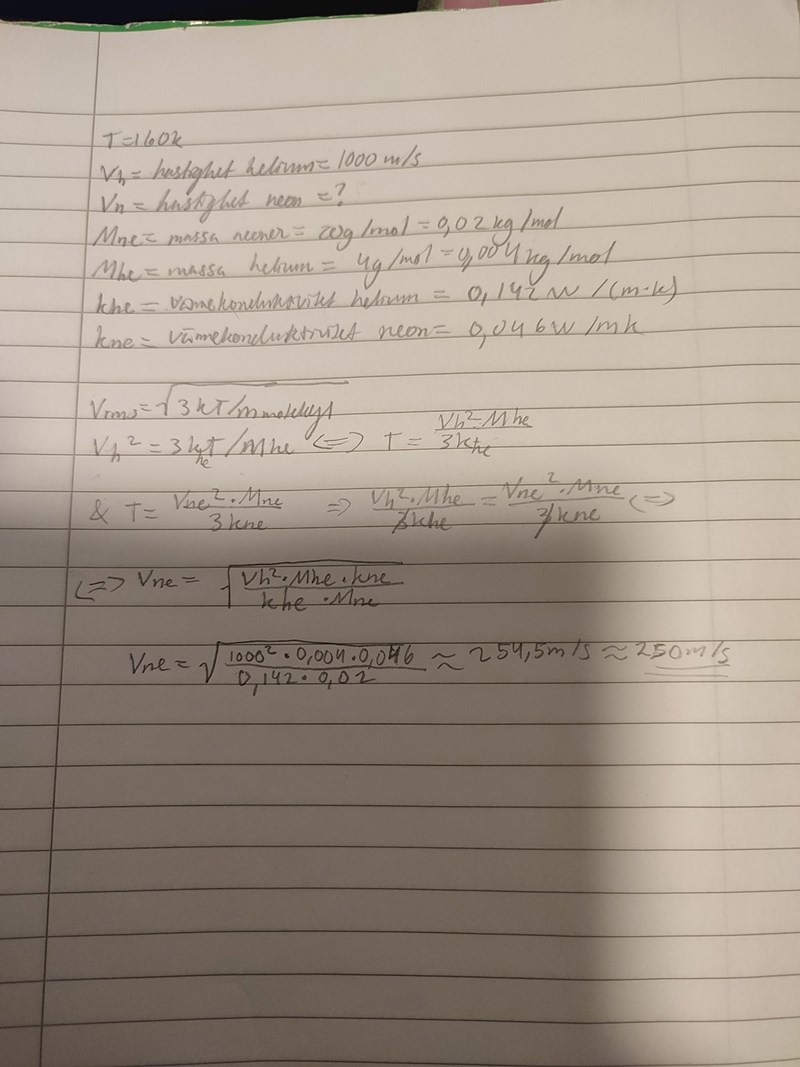 T=160k
Vh = hastighet helium = 1000 m/s
Vn = hastighet neon = ?
Mne = massa neoner = 20g/mol = 0,02 kg/mol
Mhe = massa helium = 4g/mol = 0,004 kg/mol
khe = värmekonduktivitet helium = 0,142 W/(m·k)
kne = värmekonduktivitet neon = 0,046 W/mk
Vrms = √3kT/m
Vh² = 3kheT/Mhe <=> T = Vh²·Mhe/3khe
& T = Vne²·Mne/3kne => Vh²·Mhe/3khe = Vne²·Mne/3kne <=>
<=> Vne = √Vh²·Mhe·kne/khe·Mne
Vne = √1000²·0,004·0,046/0,142·0,02 ≈ 254,5m/s ≈ 250m/s